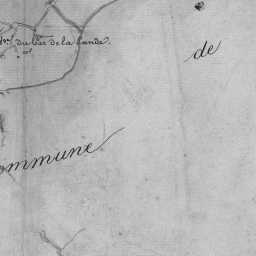 de
du bas de la lande.
commune